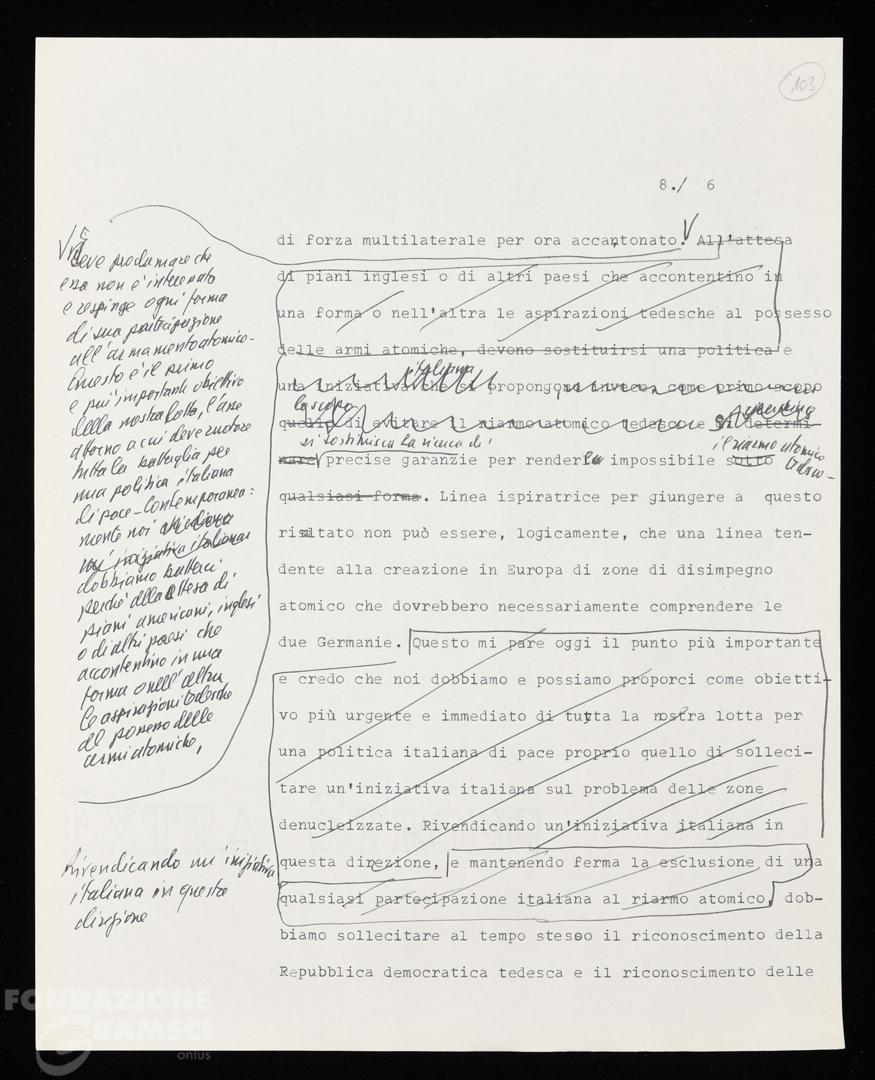 103
8./ 6
di forza multilaterale per ora accantonato. All'attesa
di piani inglesi o di altri paesi che accontentino in
una forma o nell'altra le aspirazioni tedesche al possesso
delle armi atomiche, devono sostituirsi una politica e
italiana
una iniziativa che si propongono invece come primo scopo
lo scopo
quello di evitare il riarmo atomico tedesco e di determi-
si sostituisca la ricerca di
il riarmo atomico
nare precise garanzie per render impossibile sotto
qualsiasi forma. Linea ispiratrice per giungere a questo
risultato non può essere, logicamente, che una linea ten-
dente alla creazione in Europa di zone di disimpegno
atomico che dovrebbero necessariamente comprendere le
due Germanie. Questo mi pare oggi il punto più importante
e credo che noi dobbiamo e possiamo proporci come obietti-
vo più urgente e immediato di tutta la nostra lotta per
una politica italiana di pace proprio quello di solleci-
tare un'iniziativa italiana sul problema delle zone
denucleizzate. Rivendicando un'iniziativa italiana in
questa direzione, e mantenendo ferma la esclusione di una
qualsiasi partecipazione italiana al riarmo atomico, dob-
biamo sollecitare al tempo stesso il riconoscimento della
Repubblica democratica tedesca e il riconoscimento delle
deve proclamare che
essa non è interessata
e respinge ogni forma
di sua partecipazione
all'armamento atomico.
Questo è il primo
e più importante obiettivo
della nostra lotta, l'asse
attorno a cui deve ruotare
tutta la battaglia per
una politica italiana
di pace. Contemporanea:
mente noi
un'iniziativa italiana
dobbiamo batterci
perché alla attesa di
piani americani, inglesi
o di altri paesi che
accontentino in una
forma o nell'altra
le aspirazioni tedesche
al possesso delle
armi atomiche,
Rivendicando un'iniziativa
italiana in questa
direzione
FONDAZIONE
GRAMSCI
onlus